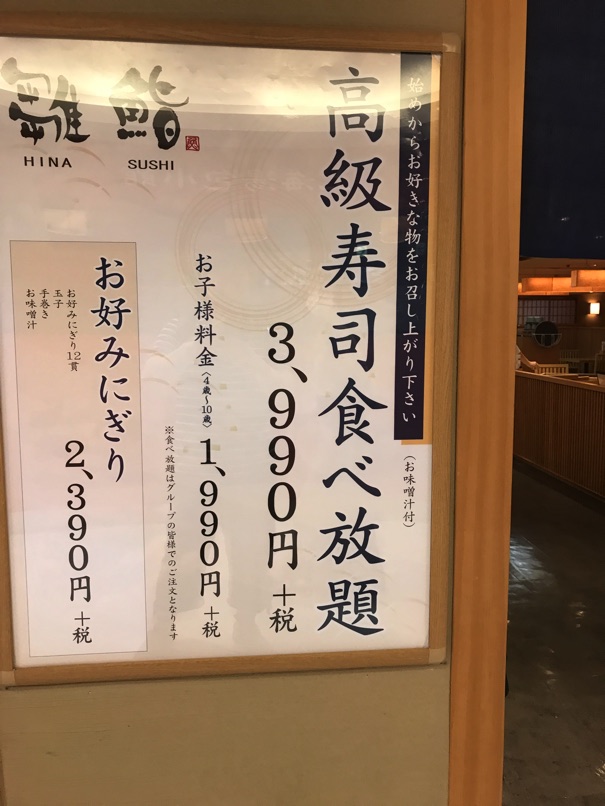 始めからお好きな物をお召し上がり下さい
(お味噌汁付)
高級寿司食べ放題
3,990円+税
お子様料金(4歳~10歳)1,990円+税
※食べ放題はグループの皆様でのご注文となります
雛鮨
HINA SUSHI
お好みにぎり
2,390円+税
お好みにぎり12貫
玉子
手巻き
お味噌汁